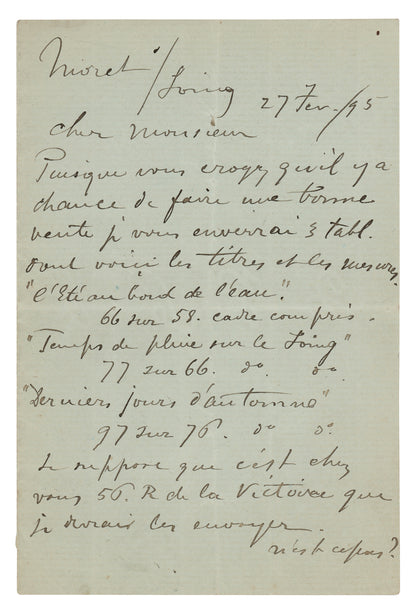 Moret / Loing
27 Fev. /95
cher Monsieur
Puisque vous croyez qu'il y a
chance de faire une bonne
vente je vous enverrai 3 tabl.
dont voici les titres et les mesures.
"l'Eté au bord de l'eau".
66 sur 58. cadre compris.
"Temps de pluie sur le Loing"
77 sur 66. do. do.
"Derniers jours d'automne"
97 sur 76. do do.
Je suppose que c'est chez
vous 56. R de la Victoire que
je devrais les envoyer.
n'est ce pas?